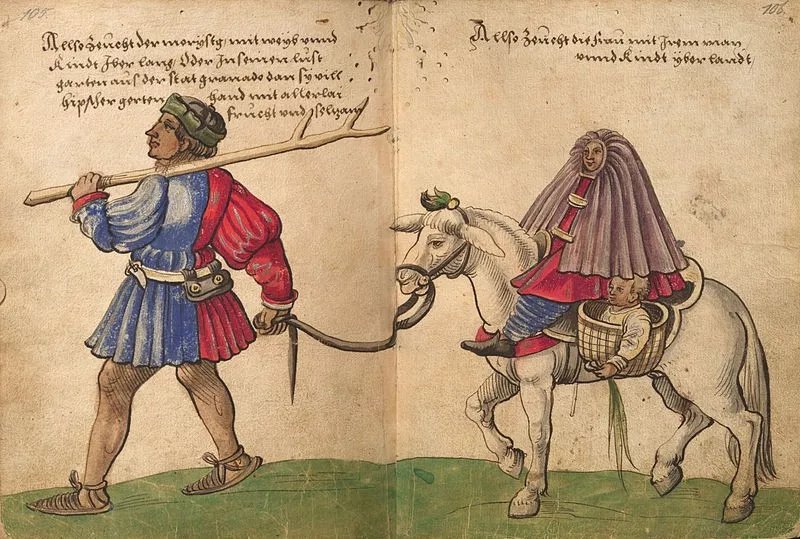 105.
Allso zeucht der morysßg, mit weyb vnnd
Kindt Jber lanng, Oder Jn seinen lust
garten aus der stat granado dan sy vill
hipscher gerten hand mit allerlai
frucht vnd selzam
106.
Allso zeucht die frau mit Jrem man
vnnd Kindt yber landt,